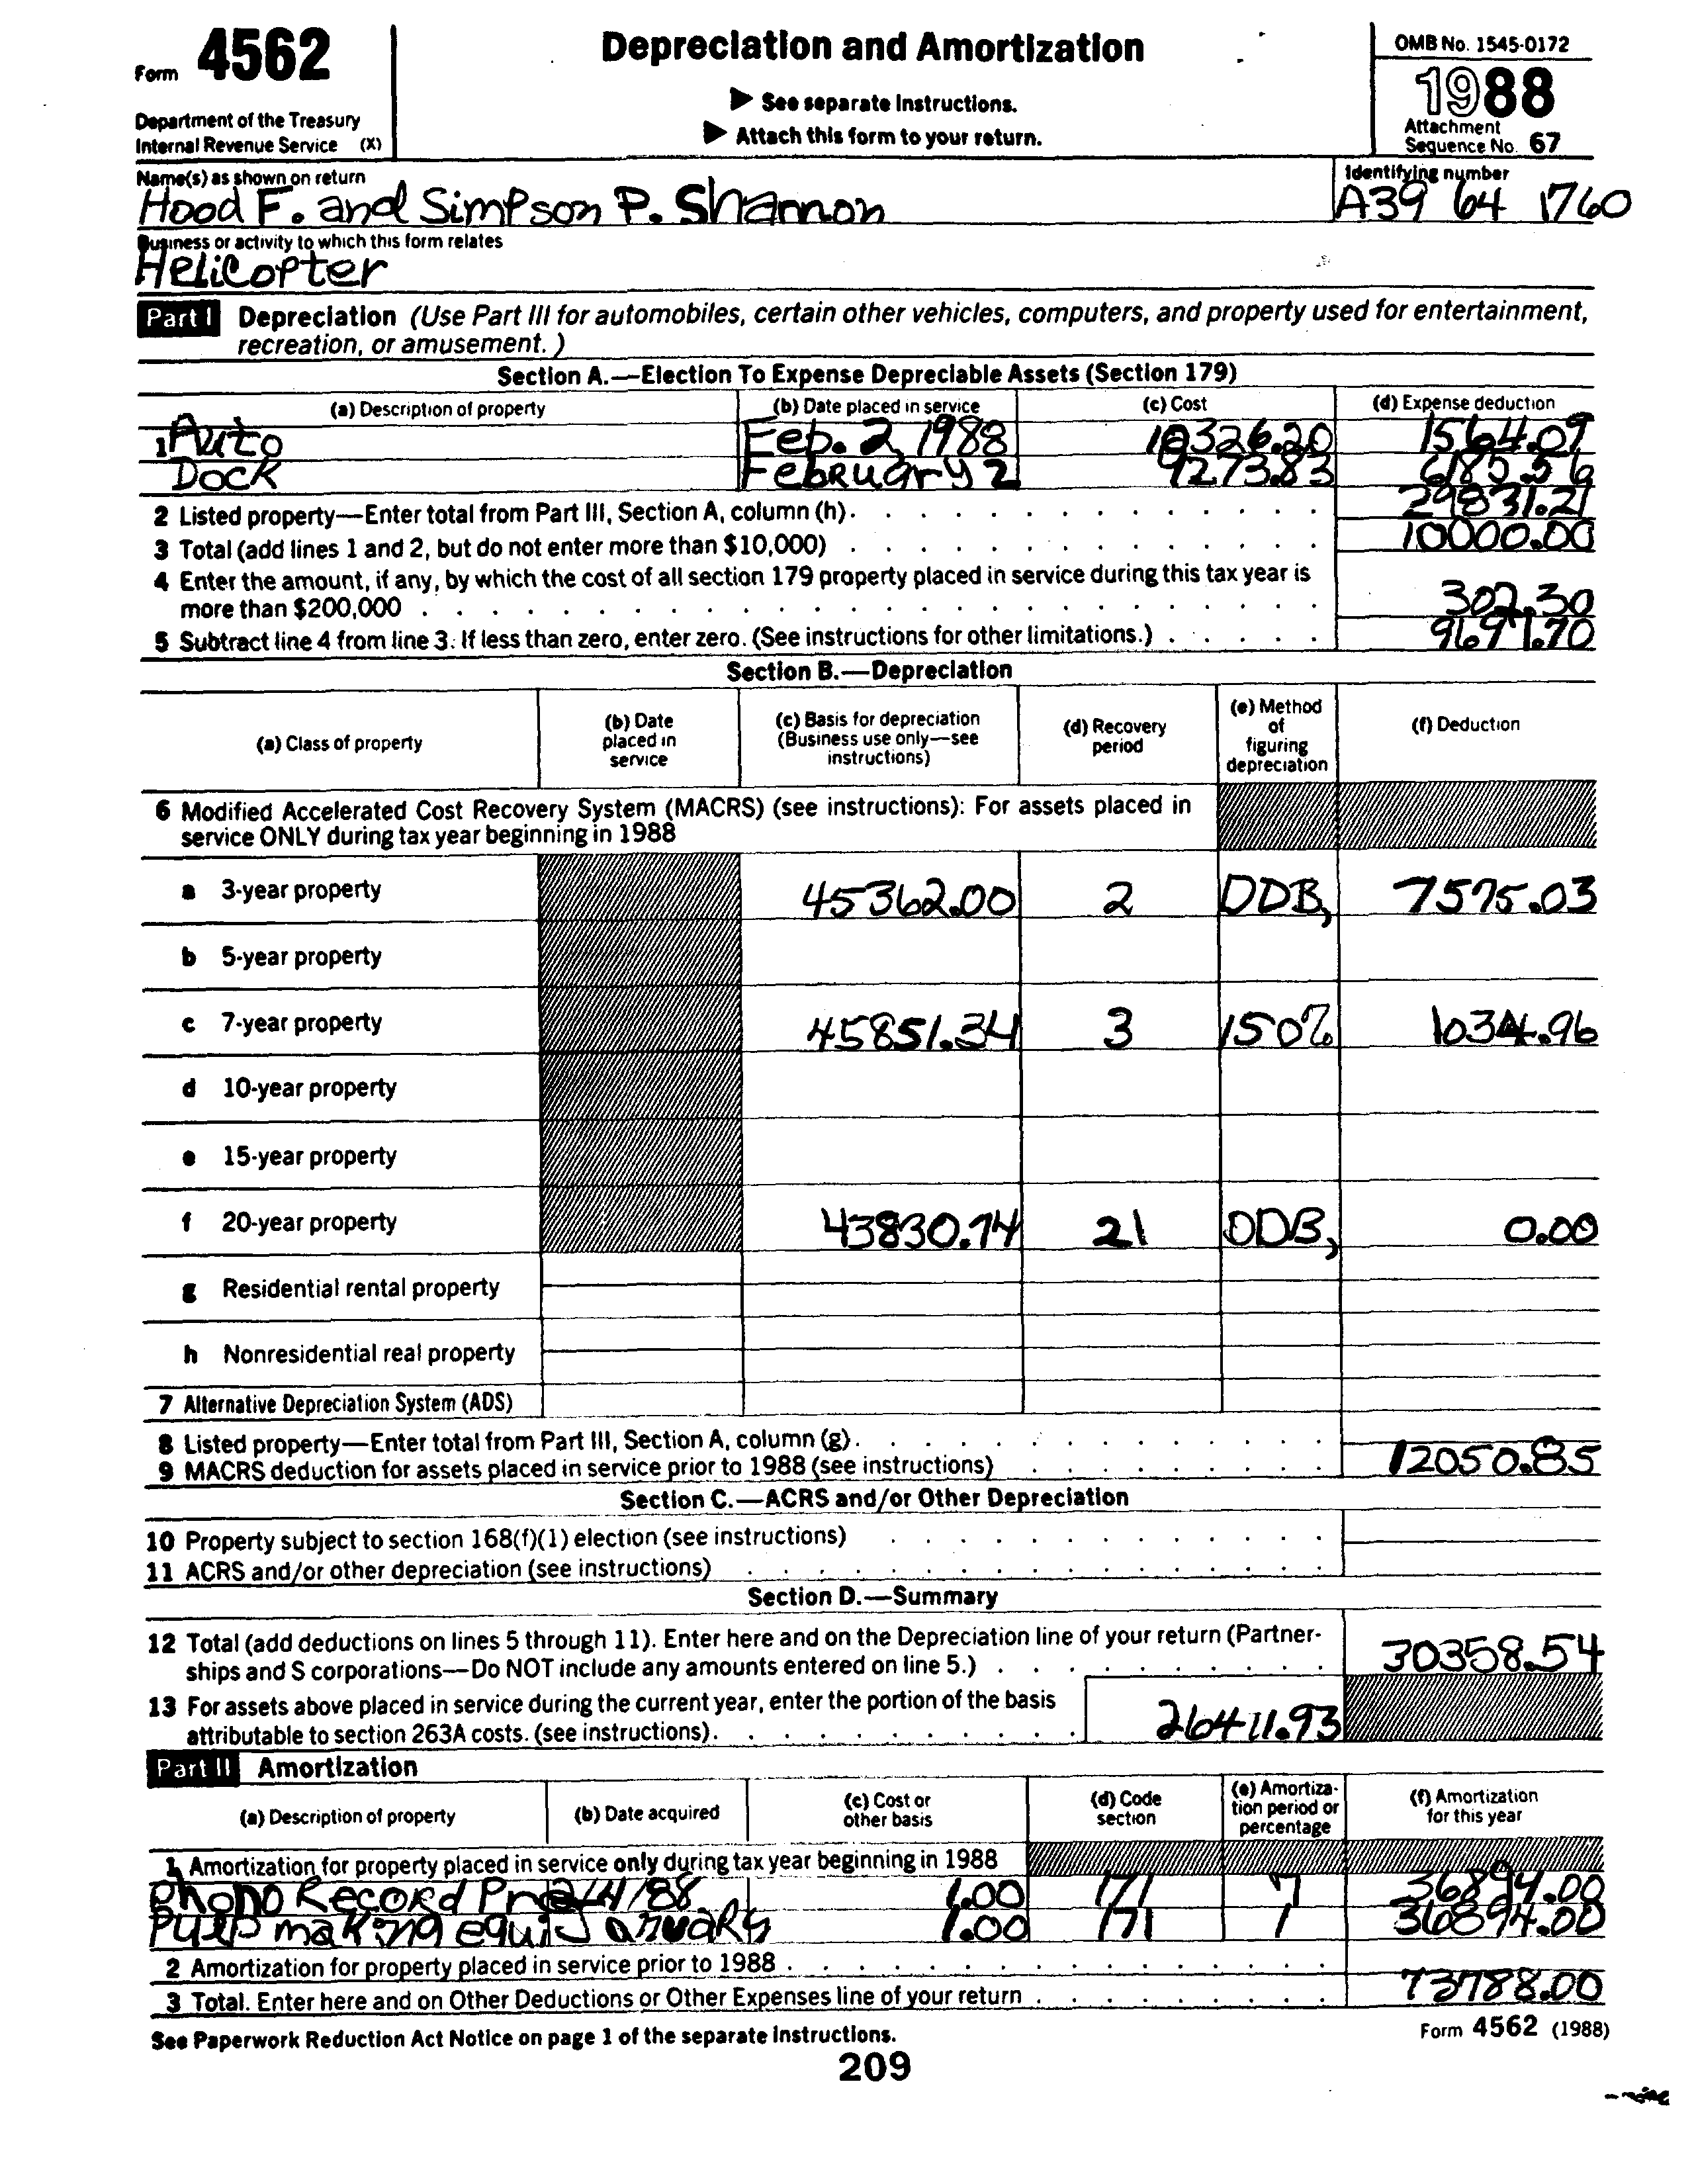 Form 4562
Department of the Treasury
Internal Revenue Service (X)
Depreciation and Amortization
▶ See separate Instructions.
▶ Attach this form to your return.
OMB No. 1545-0172
1988
Attachment
Sequence No. 67
Name(s) as shown on return
Hood F. and Simpson P. Shannon
Identifying number
A39 64 1760
Business or activity to which this form relates
Helicopter
Part I Depreciation (Use Part III for automobiles, certain other vehicles, computers, and property used for entertainment,
recreation, or amusement.)
Section A.—Election To Expense Depreciable Assets (Section 179)
(a) Description of property (b) Date placed in service (c) Cost (d) Expense deduction
1 Auto Feb. 2, 1988 10326.20 1564.09
Dock February 2 9273.83 6185.56
2 Listed property—Enter total from Part III, Section A, column (h). 29831.21
3 Total (add lines 1 and 2, but do not enter more than $10,000) 10000.00
4 Enter the amount, if any, by which the cost of all section 179 property placed in service during this tax year is
more than $200,000 302.30
5 Subtract line 4 from line 3. If less than zero, enter zero. (See instructions for other limitations.) 9697.70
Section B.—Depreciation
(a) Class of property
(b) Date
placed in
service
(c) Basis for depreciation
(Business use only—see
instructions)
(d) Recovery
period
(e) Method
of
figuring
depreciation
(f) Deduction
6 Modified Accelerated Cost Recovery System (MACRS) (see instructions): For assets placed in
service ONLY during tax year beginning in 1988
a 3-year property 45362.00 2 DDB, 7575.03
b 5-year property
c 7-year property 45851.34 3 150% 1034.96
d 10-year property
e 15-year property
f 20-year property 43830.74 21 DDB, 0.00
g Residential rental property
h Nonresidential real property
7 Alternative Depreciation System (ADS)
8 Listed property—Enter total from Part III, Section A, column (g).
9 MACRS deduction for assets placed in service prior to 1988 (see instructions) 12050.85
Section C.—ACRS and/or Other Depreciation
10 Property subject to section 168(f)(1) election (see instructions)
11 ACRS and/or other depreciation (see instructions)
Section D.—Summary
12 Total (add deductions on lines 5 through 11). Enter here and on the Depreciation line of your return (Partner-
ships and S corporations—Do NOT include any amounts entered on line 5.) 30358.54
13 For assets above placed in service during the current year, enter the portion of the basis
attributable to section 263A costs. (see instructions). 26411.93
Part II Amortization
(a) Description of property
(b) Date acquired
(c) Cost or
other basis
(d) Code
section
(e) Amortiza-
tion period or
percentage
(f) Amortization
for this year
1 Amortization for property placed in service only during tax year beginning in 1988
Phono Record Pre 2/4/88 1.00 171 7 36894.00
Pulp making equi January 1.00 171 1 36894.00
2 Amortization for property placed in service prior to 1988
3 Total. Enter here and on Other Deductions or Other Expenses line of your return 73788.00
See Paperwork Reduction Act Notice on page 1 of the separate Instructions.
Form 4562 (1988)
209